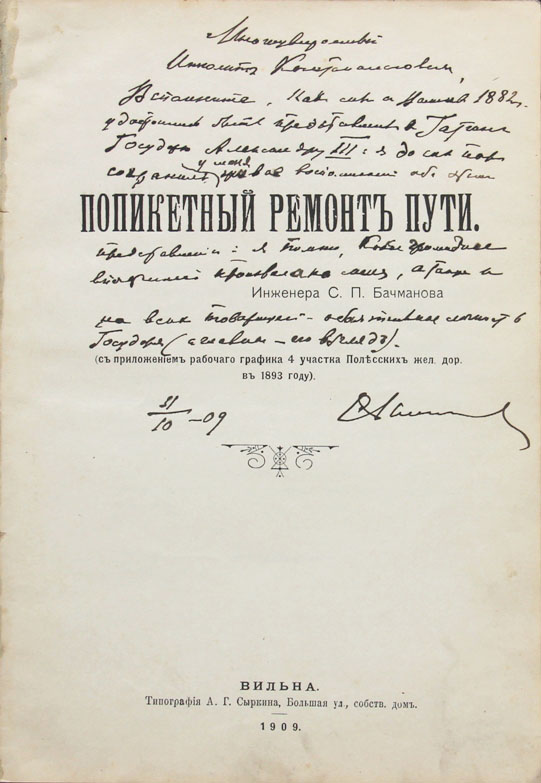 Многоуважаемый
Ипполитъ Константинович,
Вспомните, как мы в 1882 г.
удостоились быть представлены в Гатчине
Государю Александру III: я до сих пор
сохранилъ у меня живое воспоминаніе об этом
ПОПИКЕТНЫЙ РЕМОНТЪ ПУТИ.
представленіи: я помню, какое громадное
впечатленіе произвела на меня, а также и
Инженера С. П. Бачманова
на всех товарищей — личность
Государя (а главное — его взгляд).
(съ приложеніемъ рабочаго графика 4 участка Полѣсскихъ жел. дор.
въ 1893 году).
11/10 —09
ВИЛЬНА.
Типографія А. Г. Сыркина, Большая ул., собств. домъ.
1909.